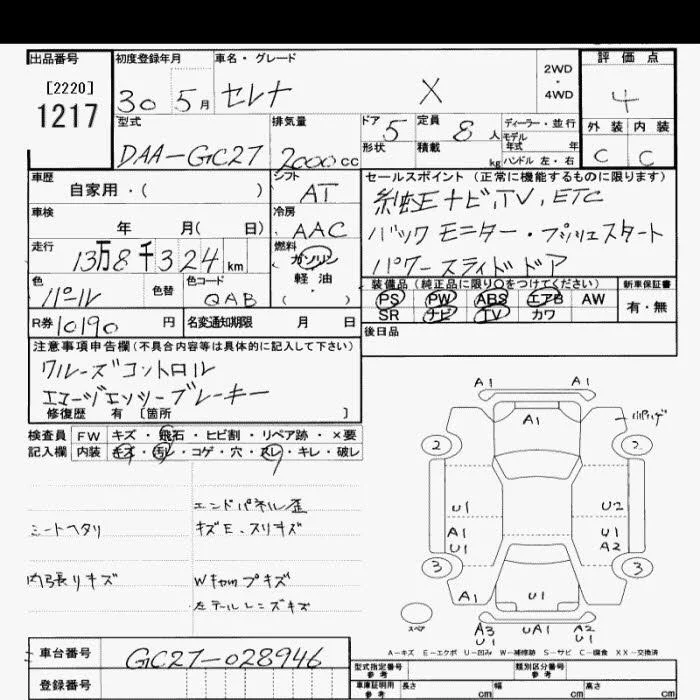 出品番号 初度登録年月 車名・グレード 2WD・4WD 評価点
[2220]
1217
30 5月 セレナ X 4
型式 排気量 ドア 5 定員 8人 ディーラー・並行 外装 内装
モデル年式 年
DAA-GC27 2000cc 形状 積載 kg ハンドル 左・右 C C
車歴 シフト セールスポイント (正常に機能するものに限ります)
自家用・( ) AT 純正ナビ,TV,ETC
車検 冷房
年 月( 日) AAC バックモニター・プッシュスタート
走行 燃料
13万8千324km ガソリン パワースライドドア
軽油
・( )
色 色替 色コード 装備品 (純正品に限り○をつけてください) 新車保証書
パール QAB PS PW ABS エアB AW 有・無
SR ナビ TV カワ
R券 10190円 名変通知期限 月 日 後日品
注意事項申告欄 (不具合内容等は具体的に記入して下さい)
クルーズコントロール
エマージェンシーブレーキー
修復歴 有 [箇所 ]
検査員 FW キズ・飛石・ヒビ割・リペア跡・×要
記入欄 内装 キズ・汚レ・コゲ・穴・スレ・キレ・破レ
エンドパネル歪
シートヘタリ キズE、スリキズ
内張りキズ Wキャップキズ
左テールレンズキズ
A1 A1
A1
2 2
U1 U2
A1 U1
U1 A2
3 3
A1 U1
スペア A3 UA1 A2
U1 U1
A-キズ E-エクボ U-凹み W-補修跡 S-サビ C-腐食 XX-交換済
車台番号 GC27-028946
登録番号
型式指定番号 参考 類別区分番号 参考
車庫証明用 参考 長さ cm 幅 cm 高さ cm